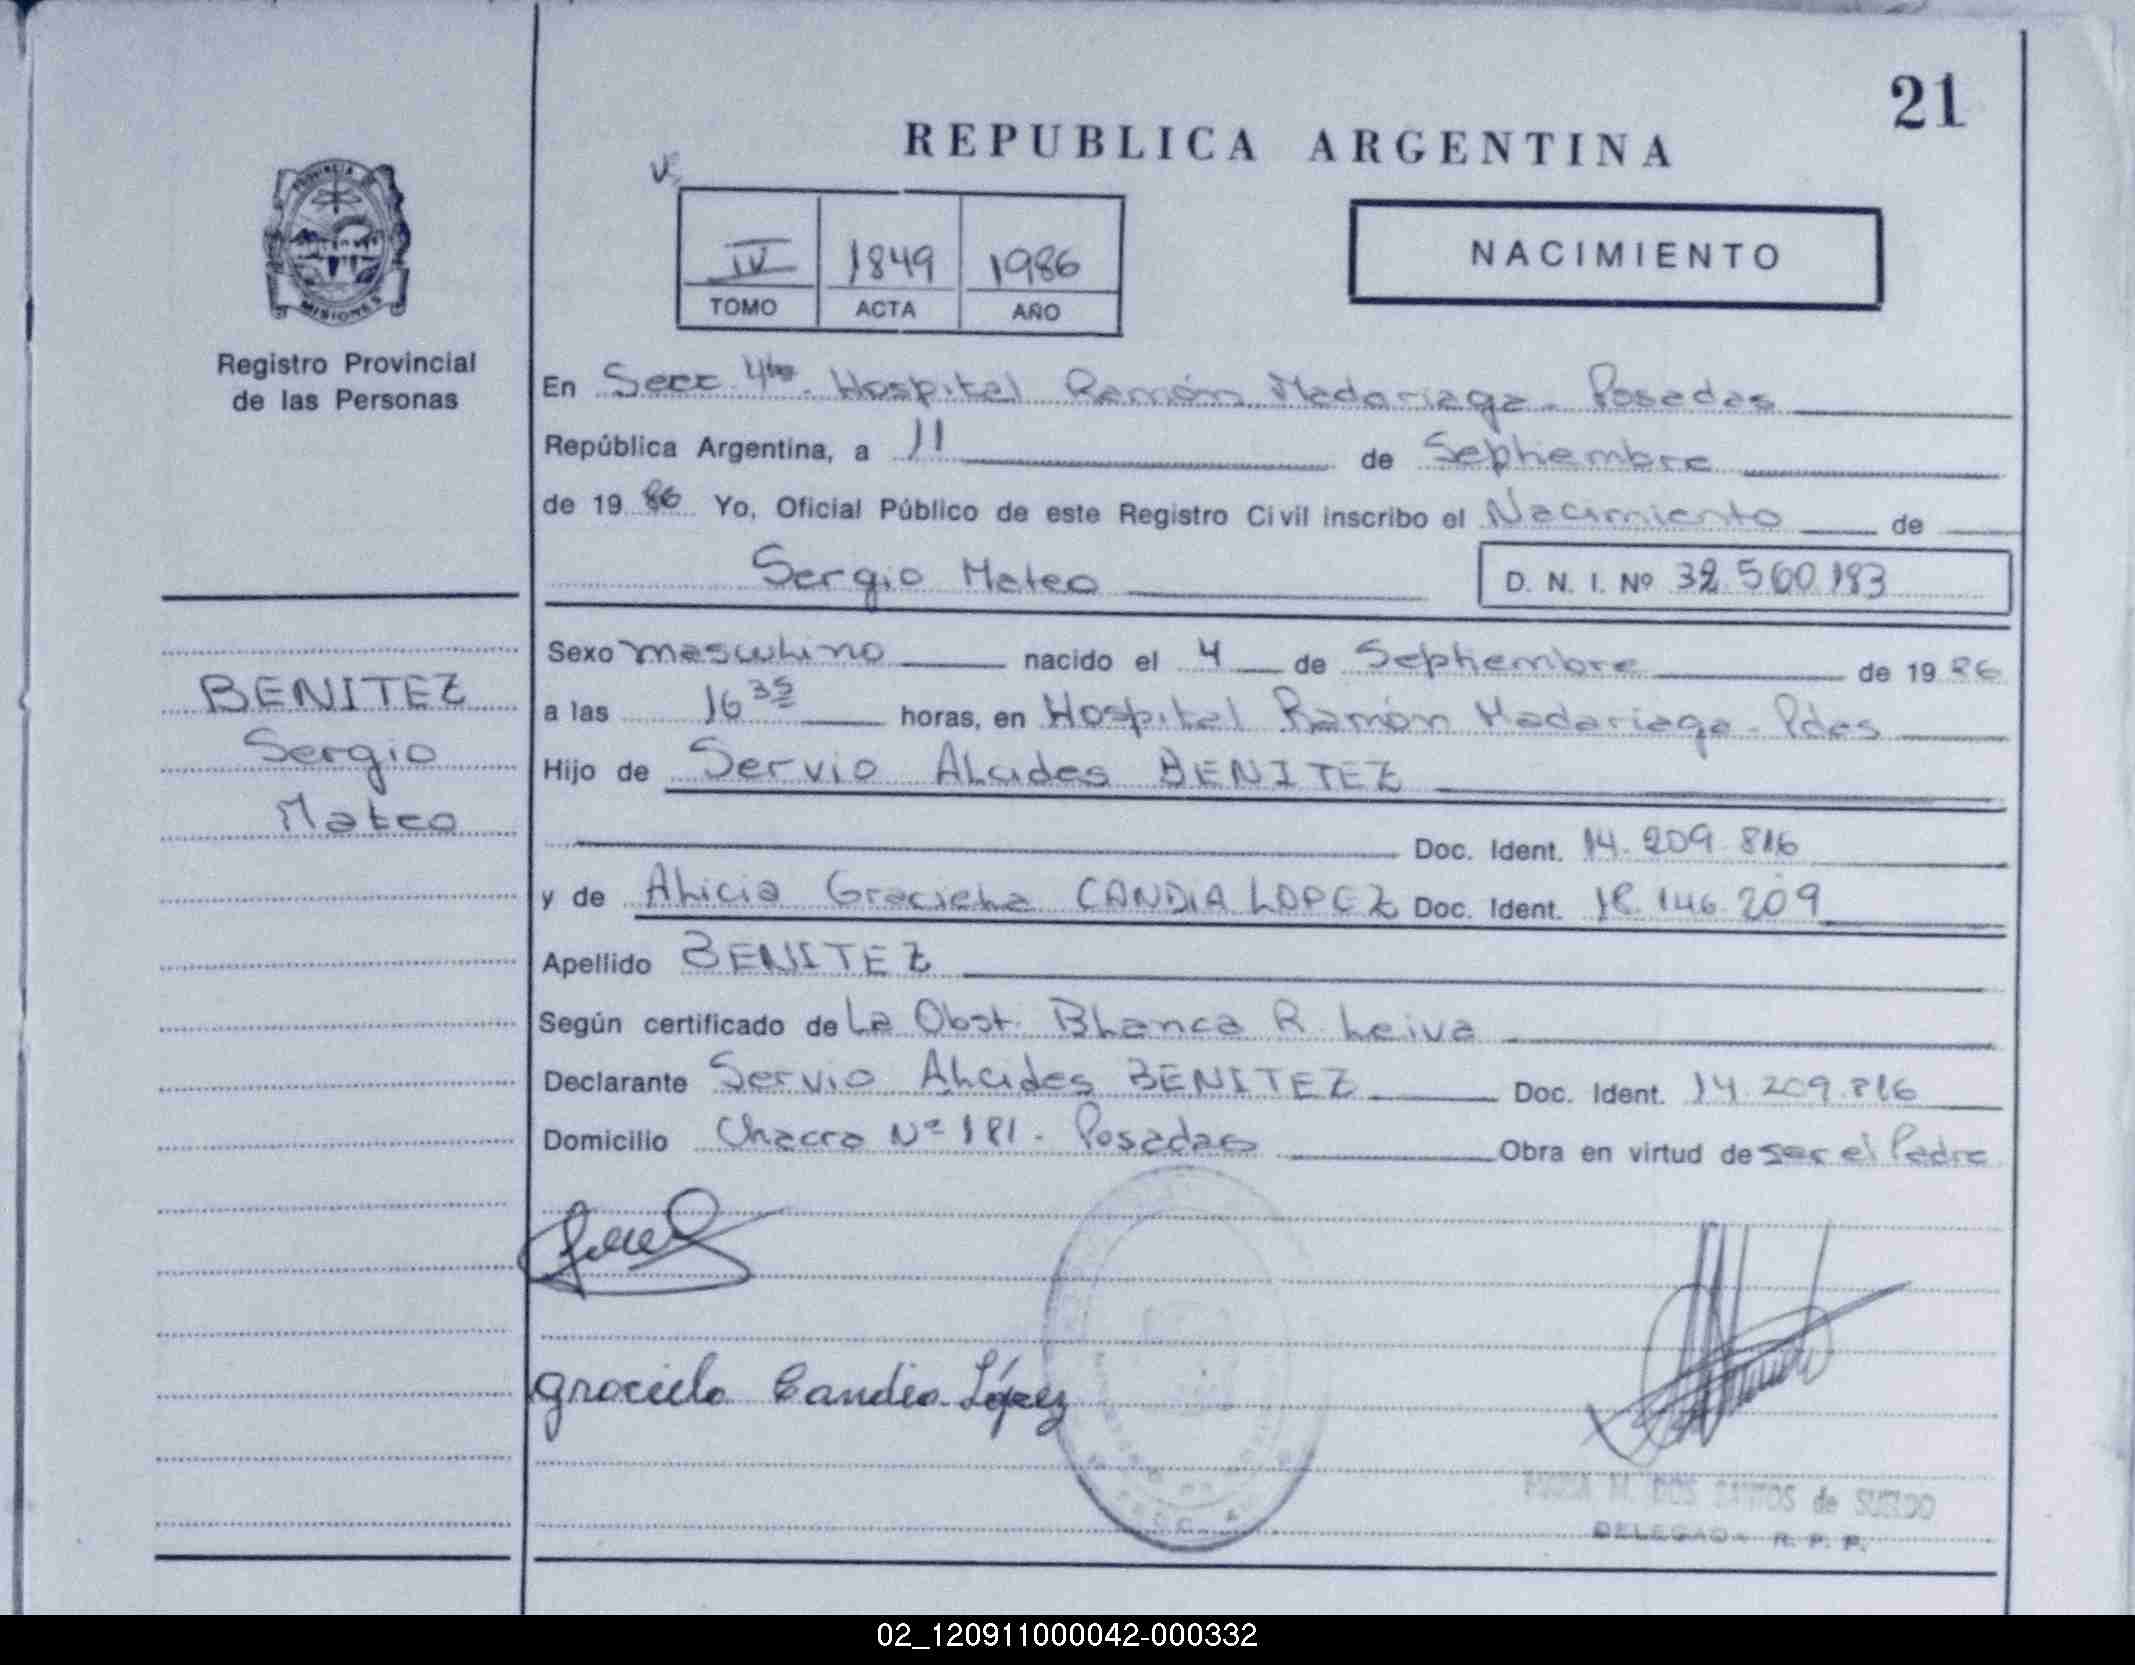 21
REPUBLICA ARGENTINA
PROVINCIA DE
MISIONES
Registro Provincial
de las Personas
IV 1849 1986
TOMO ACTA AÑO
NACIMIENTO
En Secc 4ta. Hospital Ramón Madariaga - Posadas
República Argentina, a 11 de Septiembre
de 1986 Yo, Oficial Público de este Registro Civil inscribo el Nacimiento de
Sergio Mateo D. N. I. Nº 32.560.183
BENITEZ
Sergio
Mateo
Sexo masculino nacido el 4 de Septiembre de 1986
a las 16 35 horas, en Hospital Ramón Madariaga - Pdas
Hijo de Servio Alcides BENITEZ
Doc. Ident. 14.209.816
y de Alicia Graciela CANDIA LOPEZ Doc. Ident. 18.146.209
Apellido BENITEZ
Según certificado de La Obst. Blanca R. Leiva
Declarante Servio Alcides BENITEZ Doc. Ident. 14.209.816
Domicilio Chacra Nº 181 - Posadas Obra en virtud de ser el Padre
Graciela Candia López
M. DOS SANTOS de
DELEGADA R. P. P.
02_120911000042-000332